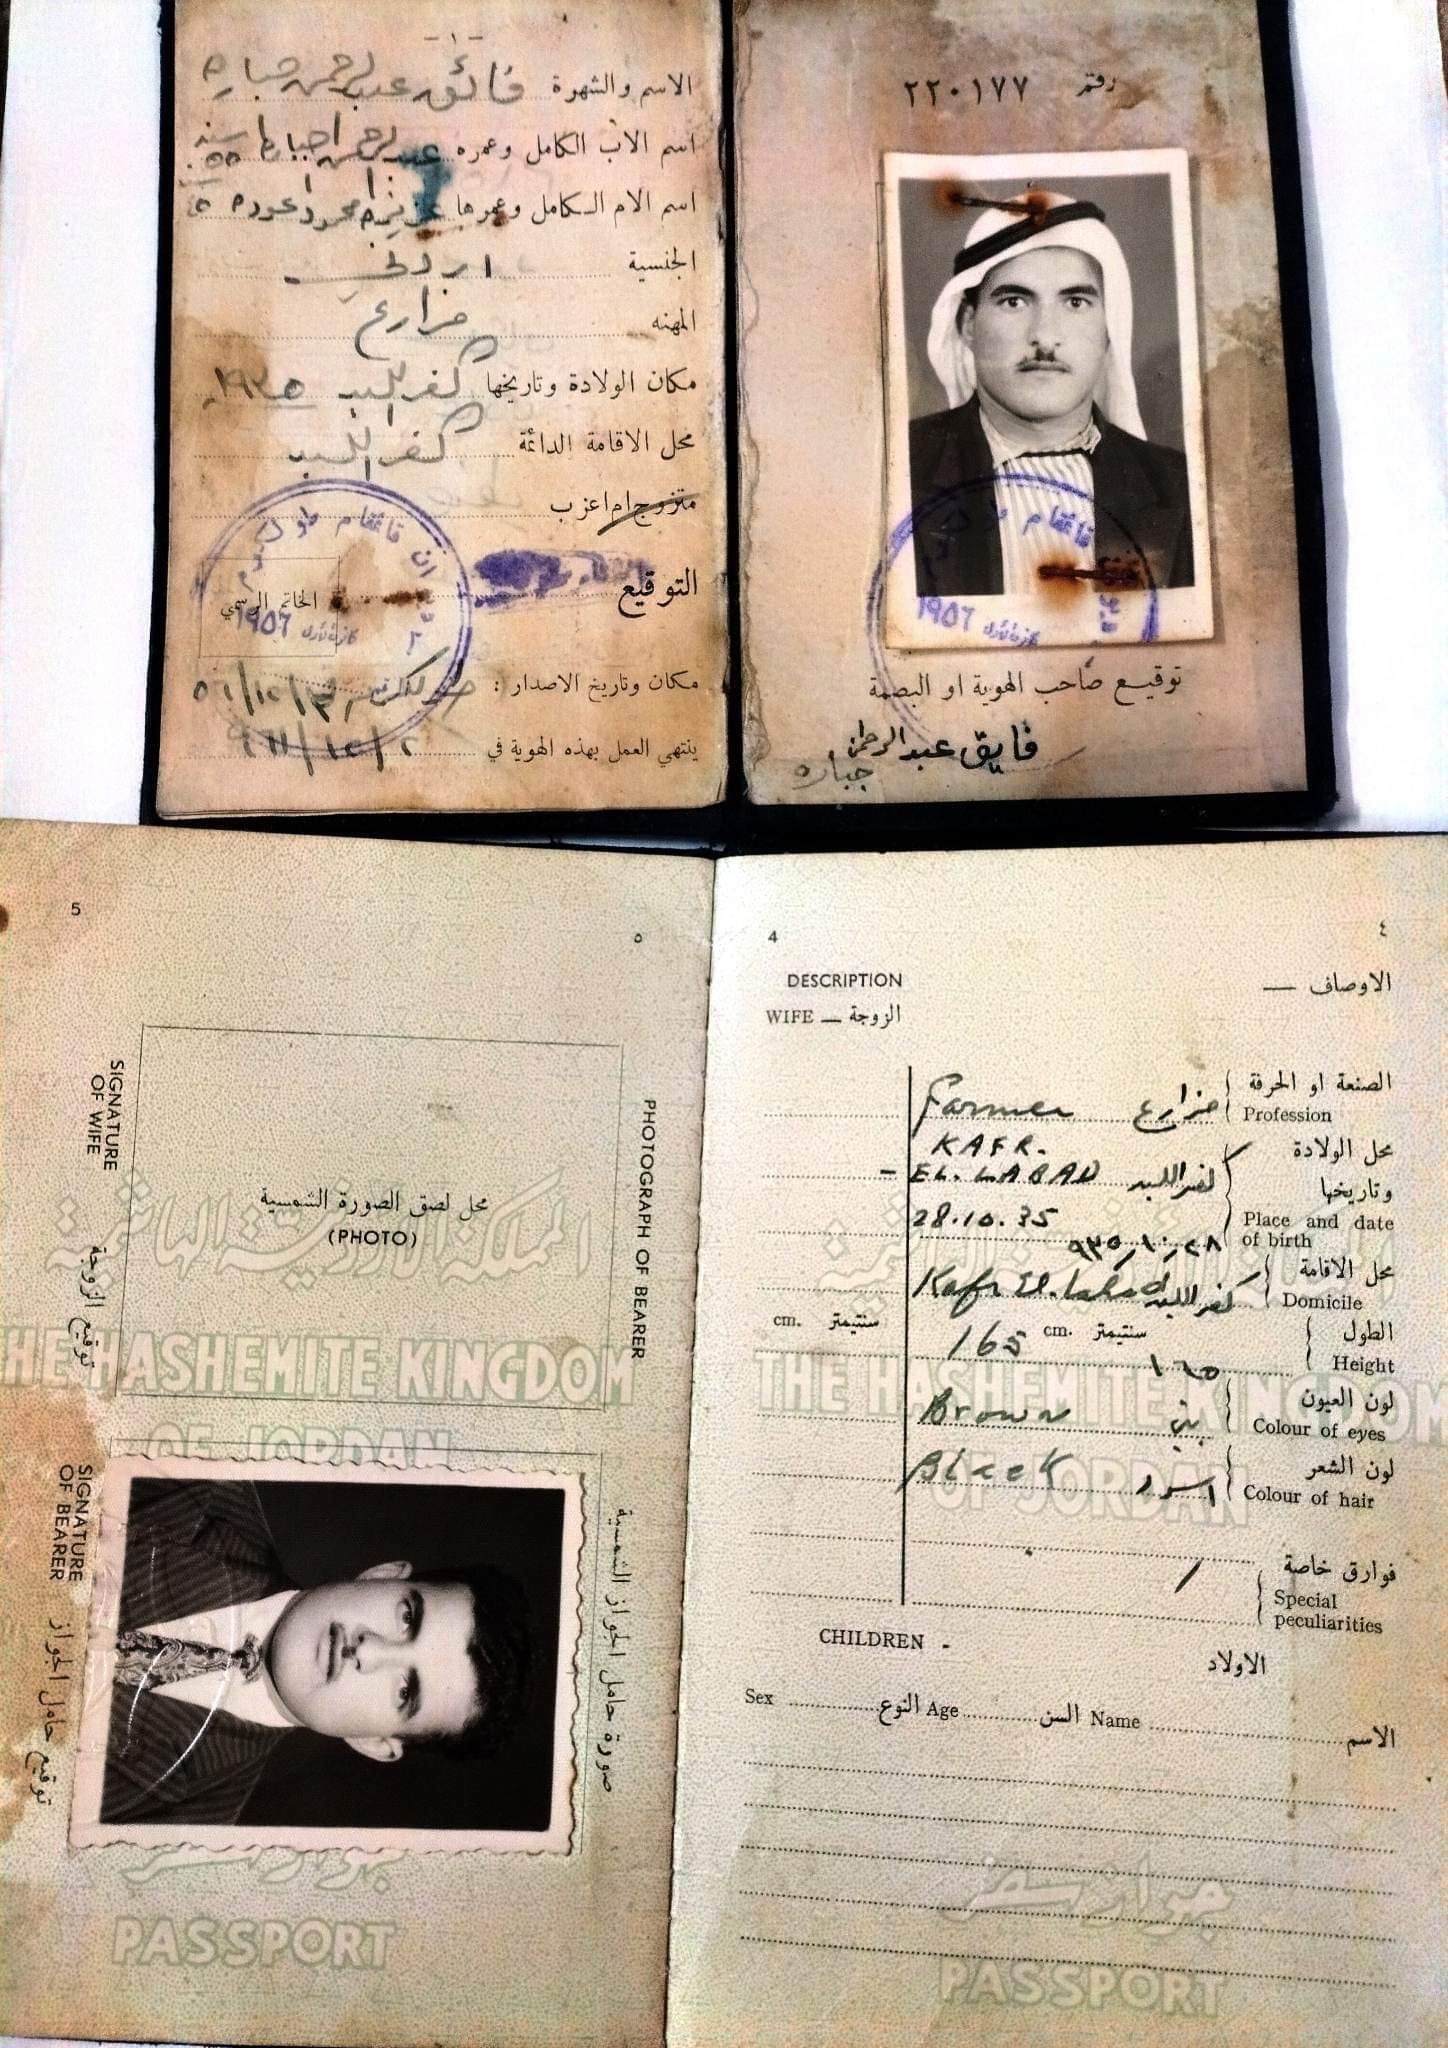 - ١ -
الاسم والشهرة فائق عبد الرحمن جباره
اسم الاب الكامل وعمره عبد الرحمن ٥٥ سنه
اسم الام الكامل وعمرها محمود عوده
الجنسية اردني
المهنه مزارع
مكان الولادة وتاريخها كفر اللبد ١٩٣٥
محل الاقامة الدائمة كفر اللبد
متزوج ام اعزب
التوقيع
الخاتم الرسمي
قائمقام طولكرم
١٩٥٦
مكان وتاريخ الاصدار :
ينتهي العمل بهذه الهوية في
رقم ٢٢٠١٧٧
قائمقام طولكرم
١٩٥٦
توقيع صاحب الهوية او البصمة
فايق عبد الرحمن
جباره
5
٥
SIGNATURE OF WIFE
توقيع الزوجة
محل لصق الصورة الشمسية
(PHOTO)
PHOTOGRAPH OF BEARER
المملكة الاردنية الهاشمية
THE HASHEMITE KINGDOM
OF JORDAN
SIGNATURE OF BEARER
توقيع حامل الجواز
صورة حامل الجواز الشمسية
جواز سفر
PASSPORT
4
٤
DESCRIPTION
الاوصاف —
WIFE — الزوجة
Farmer مزارع
الصنعة او الحرفة
Profession
KAFR.
EL. LABAD كفر اللبد
28.10.35
٩٣٥/١٠/٢٨
محل الولادة
وتاريخها
Place and date
of birth
Kafr El. Labad كفر اللبد
محل الاقامة
Domicile
cm. سنتيمتر
165 cm. سنتيمتر
١٦٥
الطول
Height
Brown بني
لون العيون
Colour of eyes
Black اسود
لون الشعر
Colour of hair
/
فوارق خاصة
Special
peculiarities
THE HASHEMITE KINGDOM
OF JORDAN
CHILDREN -
الاولاد
Sex النوع Age السن Name الاسم
جواز سفر
PASSPORT